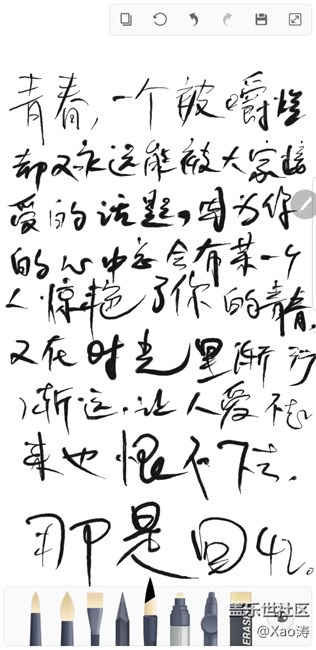 青春，一个被嚼烂
却又永远能被大家接
受的话题，因为你
的心中总会有某一个
人惊艳了你的青春，
又在时光里渐行
渐远，让人爱不起
来也恨不下去。
那是回忆。
ERASER
盖乐世社区
@Xao涛